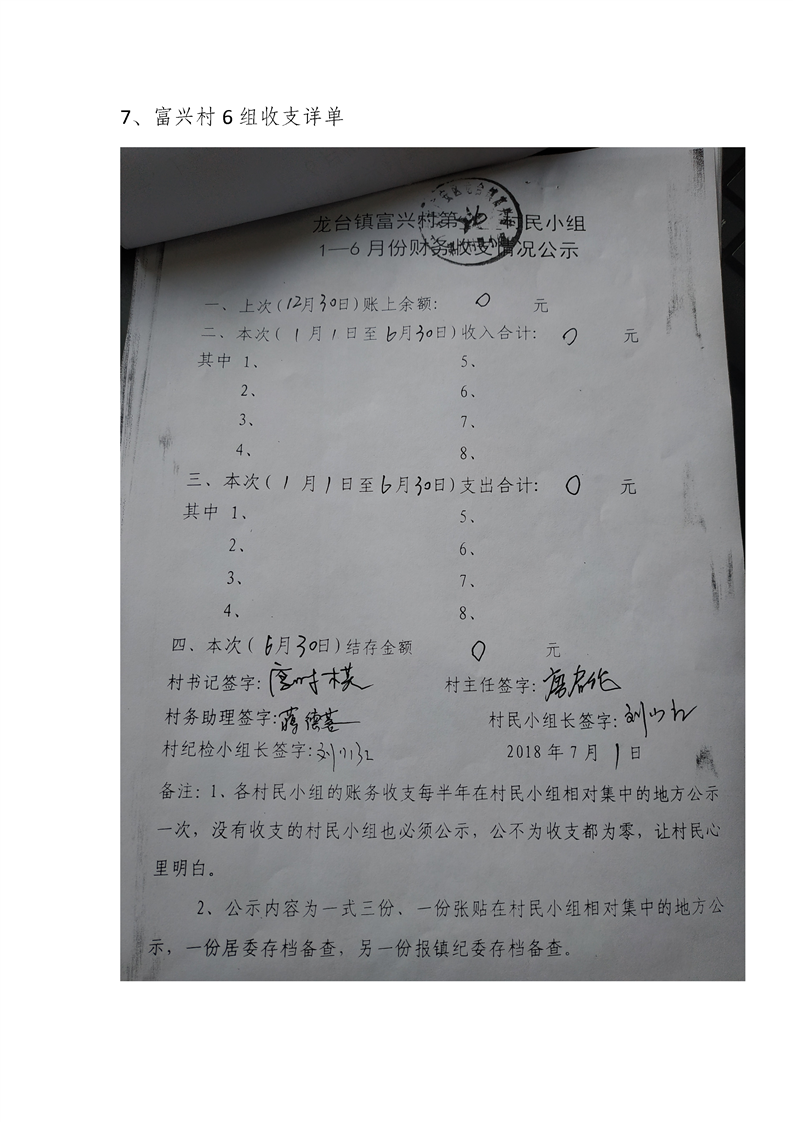 7、富兴村 6 组收支详单
龙台镇富兴村第 村民小组
1—6月份财务收支情况公示
一、上次(12月30日)账上余额: 0 元
二、本次(1月1日至6月30日)收入合计: 0 元
其中 1、 5、
2、 6、
3、 7、
4、 8、
三、本次(1月1日至6月30日)支出合计: 0 元
其中 1、 5、
2、 6、
3、 7、
4、 8、
四、本次(6月30日)结存金额 0 元
村书记签字: 村主任签字:
村务助理签字: 村民小组长签字:
村纪检小组长签字: 2018年7月1日
备注:1、各村民小组的账务收支每半年在村民小组相对集中的地方公示
一次,没有收支的村民小组也必须公示,公不为收支都为零,让村民心
里明白。
2、公示内容为一式三份、一份张贴在村民小组相对集中的地方公
示,一份居委存档备查,另一份报镇纪委存档备查。